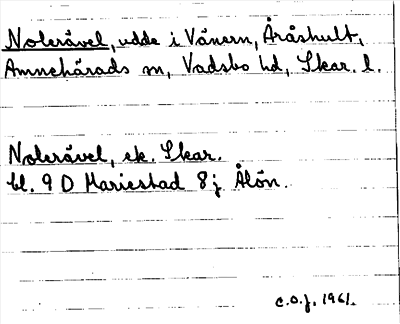 Nolerävel, udde i Vänern, Åråshult,
Amnehärads sn, Vadsbo hd, Skar. l.
Nolerävel, ek. Skar.
bl. 9 D Mariestad 8 j Ålön.
C.O.J. 1961.